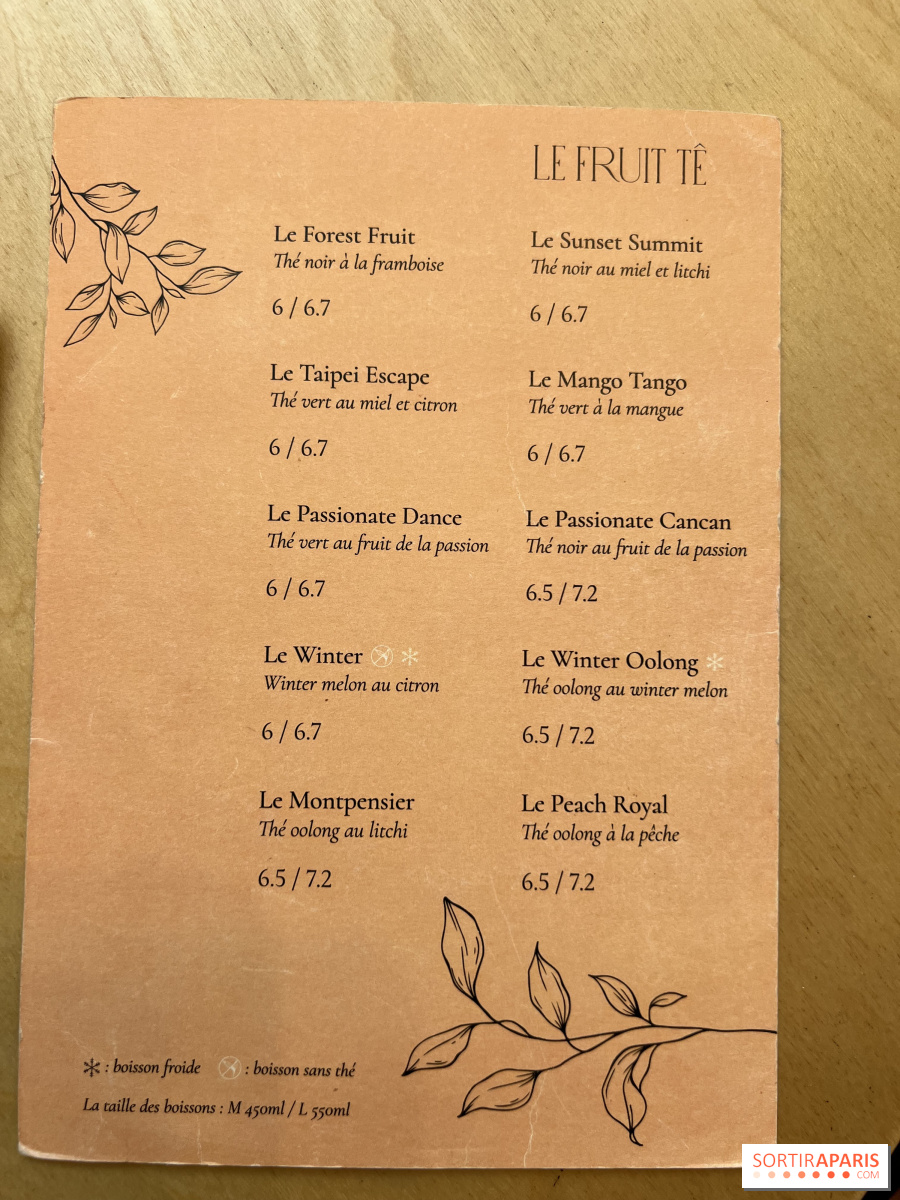 LE FRUIT TÊ
Le Forest Fruit
Thé noir à la framboise
6 / 6.7
Le Sunset Summit
Thé noir au miel et litchi
6 / 6.7
Le Taipei Escape
Thé vert au miel et citron
6 / 6.7
Le Mango Tango
Thé vert à la mangue
6 / 6.7
Le Passionate Dance
Thé vert au fruit de la passion
6 / 6.7
Le Passionate Cancan
Thé noir au fruit de la passion
6.5 / 7.2
Le Winter
Winter melon au citron
6 / 6.7
Le Winter Oolong
Thé oolong au winter melon
6.5 / 7.2
Le Montpensier
Thé oolong au litchi
6.5 / 7.2
Le Peach Royal
Thé oolong à la pêche
6.5 / 7.2
: boisson froide : boisson sans thé
La taille des boissons : M 450ml / L 550ml
SORTIRAPARIS
.COM